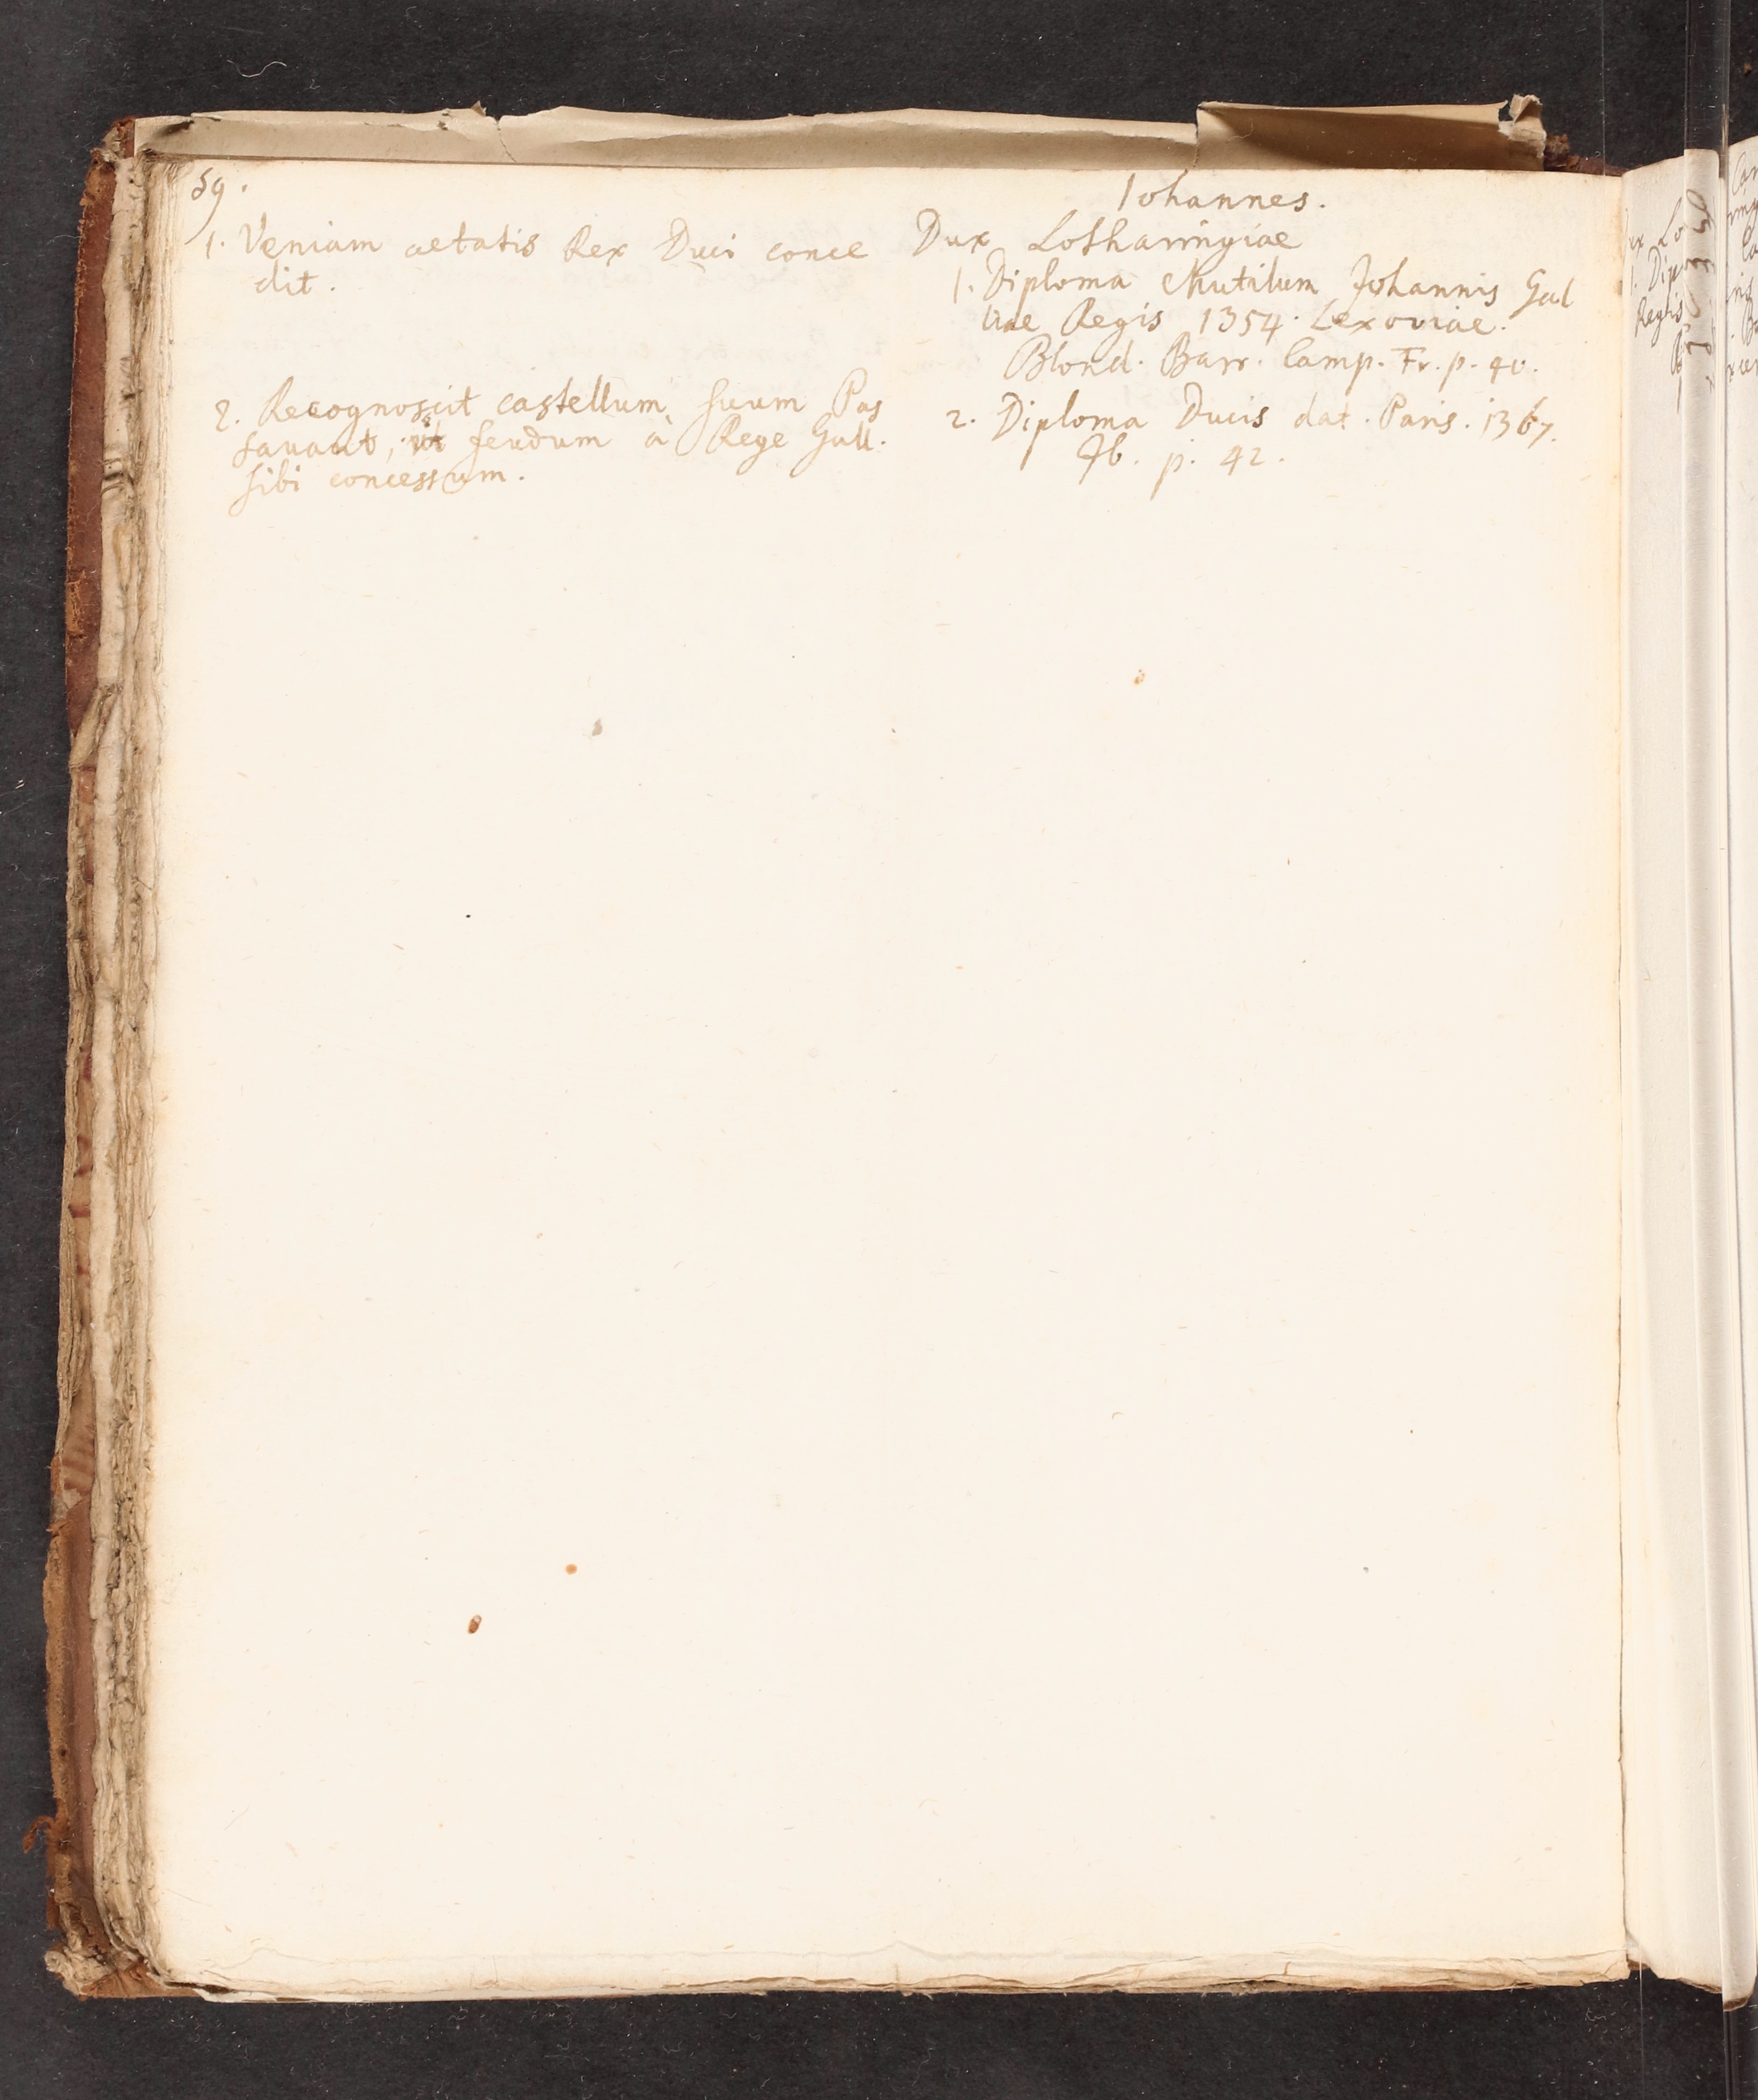 59.
1. Veniam aetatis Rex Duci conce
dit.
2. Recognoscit castellum suum Pas
savant, ut feudum à Rege Gall.
sibi concessum.
Iohannes.
Dux Lotharingiae
1. Diploma Mutilum Johannis Gal
liae Regis 1354. Lexoviae.
Blond. Barr. Camp. Fr. p. 40.
2. Diploma Ducis dat. Paris. 1367.
Ib. p. 42.